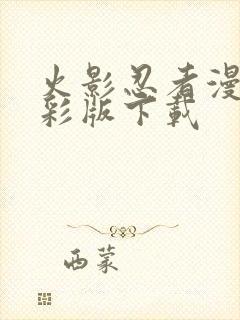 火影忍者漫
彩版下載
西蒙